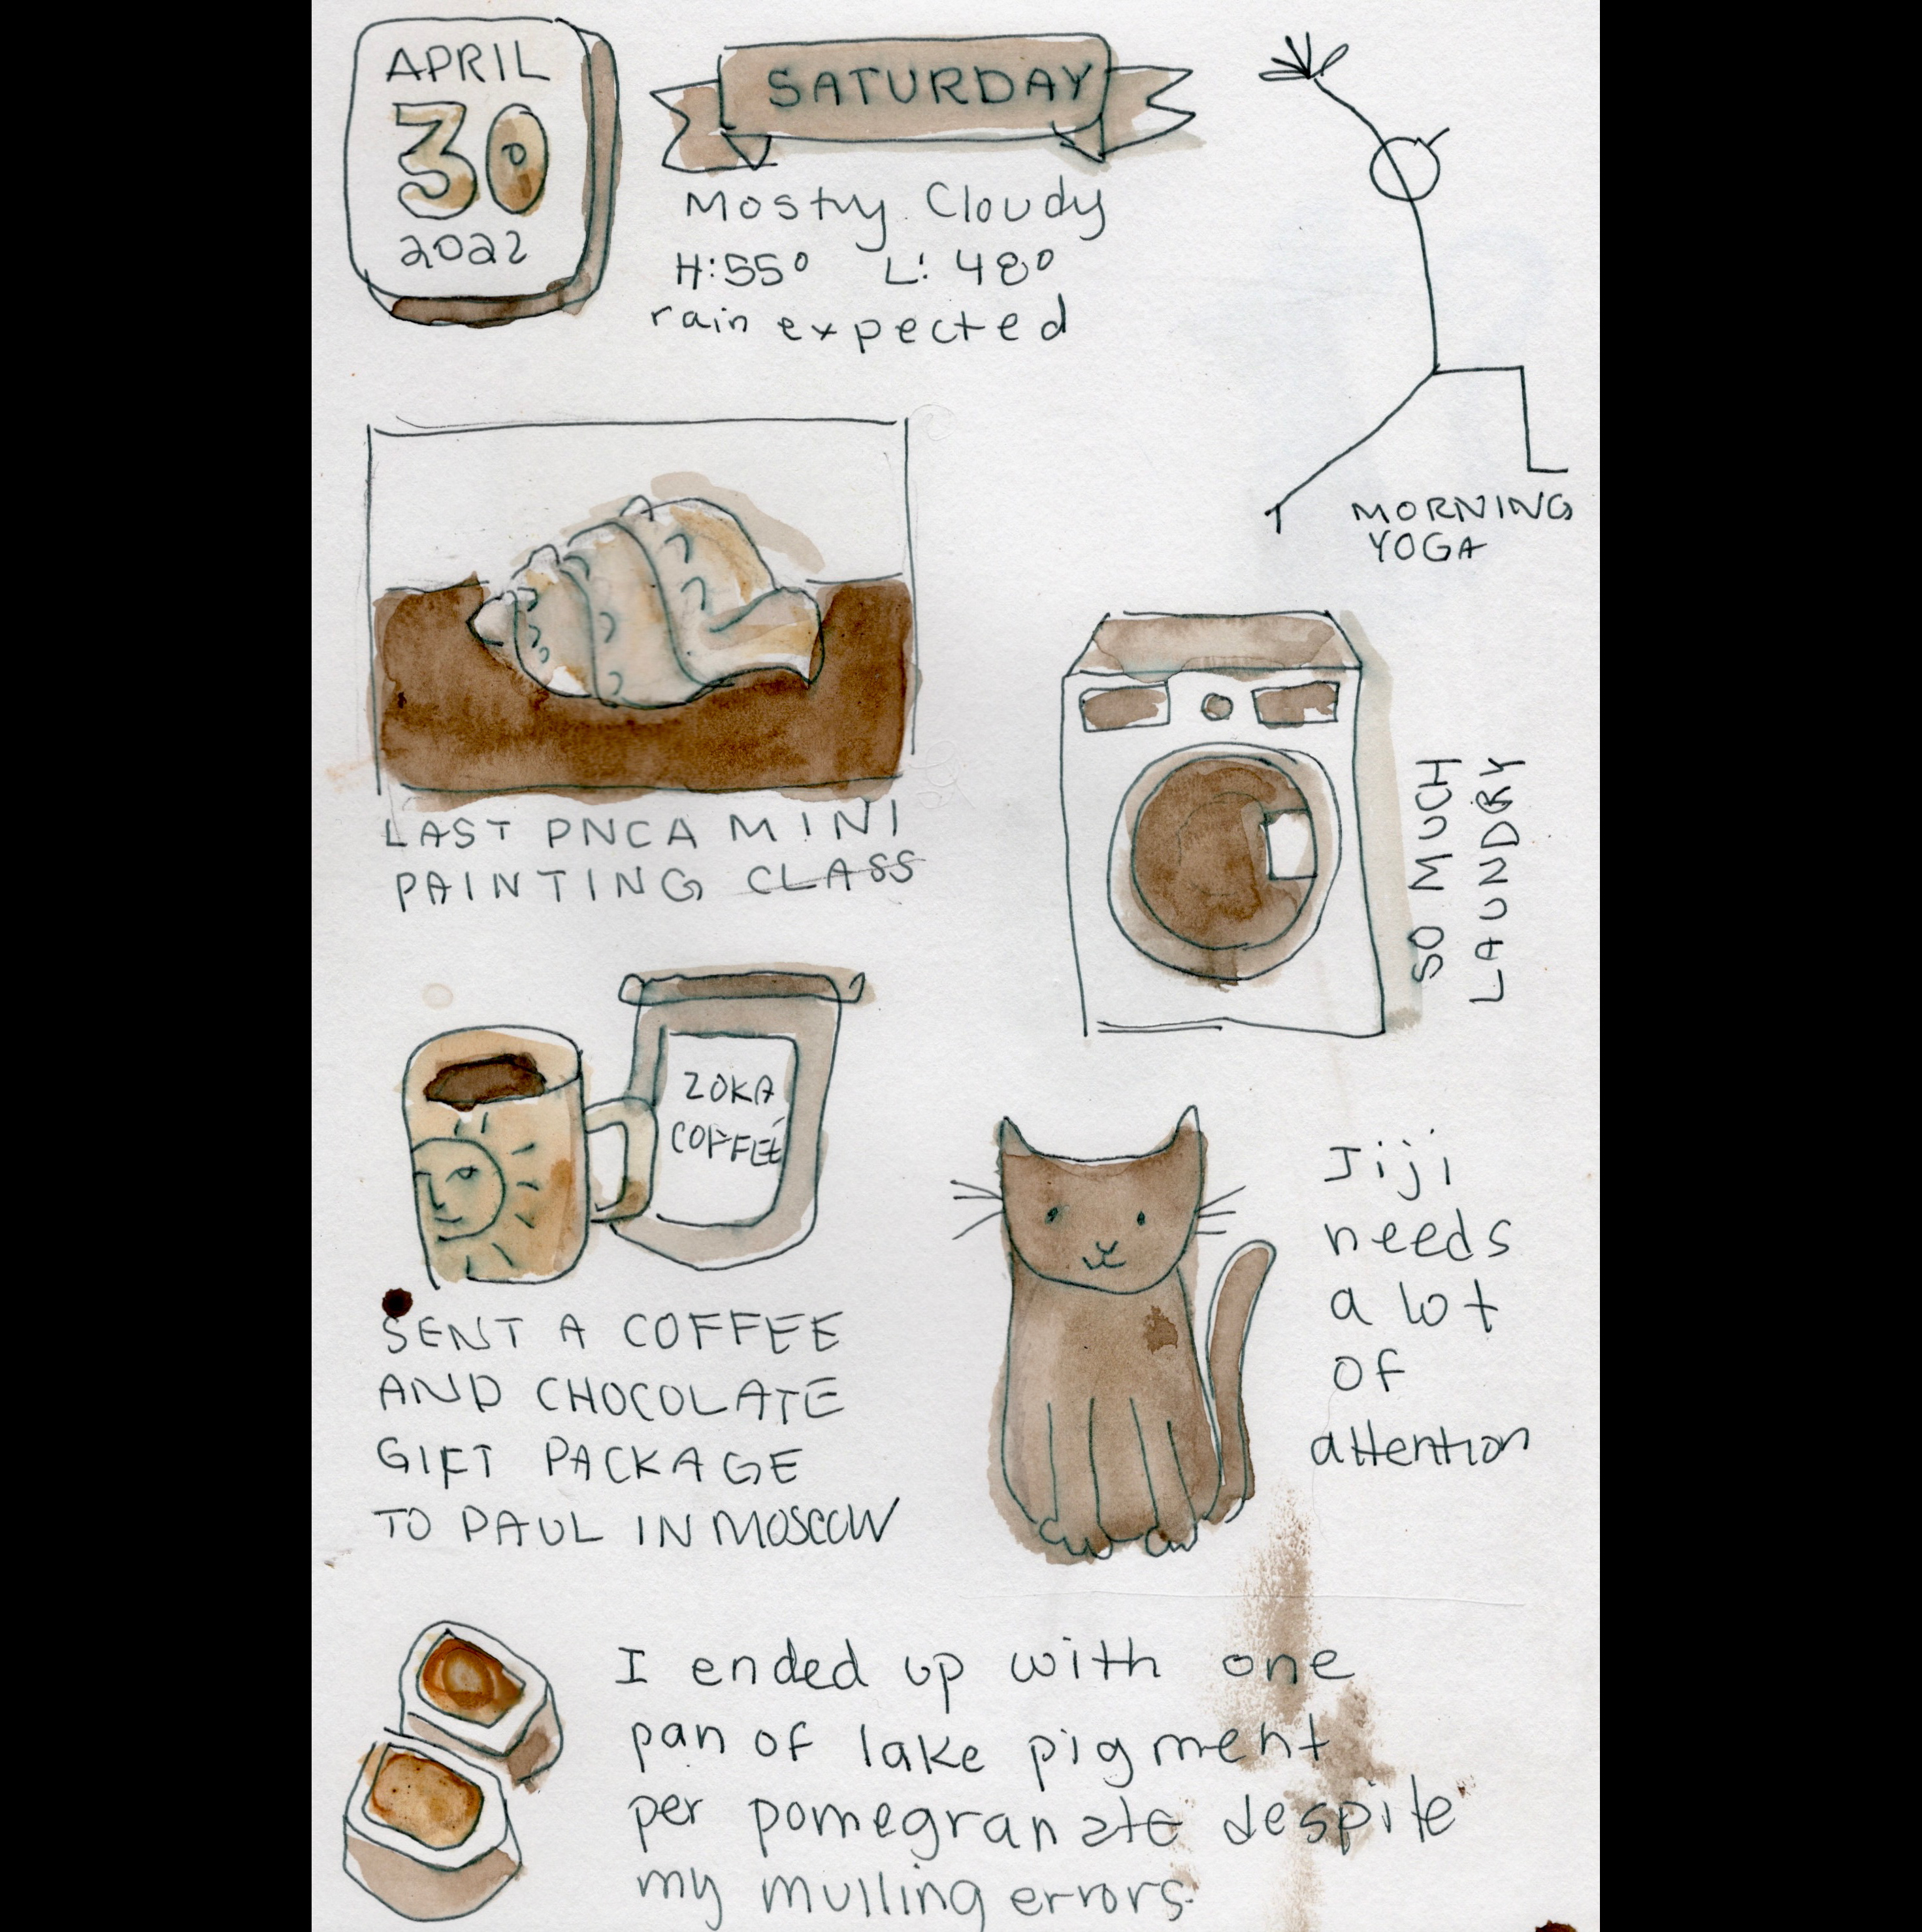 APRIL
30
2022
SATURDAY
Mostly Cloudy
H:55° L: 48°
rain expected
MORNING
YOGA
LAST PNCA MINI
PAINTING CLASS
SO MUCH
LAUNDRY
ZOKA
COFFEE
SENT A COFFEE
AND CHOCOLATE
GIFT PACKAGE
TO PAUL IN MOSCOW
Jiji
needs
a lot
of
attention
I ended up with one
pan of lake pigment
per pomegranate despite
my mulling errors.